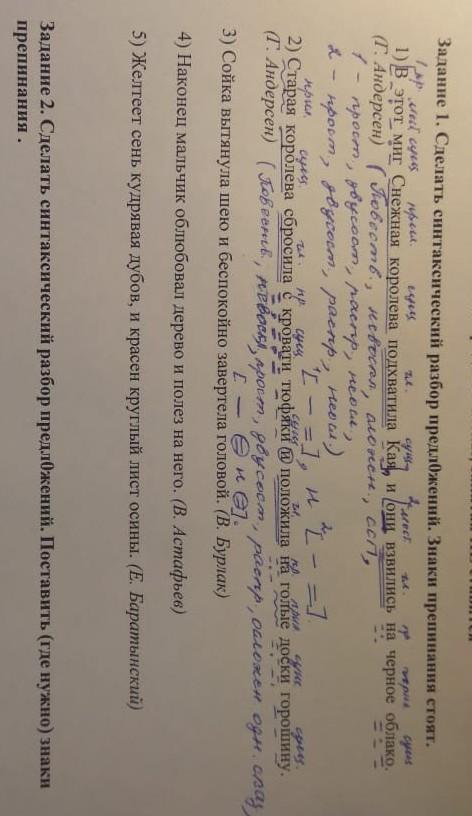 Задание 1. Сделать синтаксический разбор предложений. Знаки препинания стоят.
пр. сущ прил. сущ гл. сущ 2 мест гл. пр прил сущ
1) В этот миг Снежная королева подхватила Кая, и они взвились на черное облако.
(Г. Андерсен) (Повеств, невоскл, сложн, ССП,
1 - прост, двусост, распр, неосл,
2 - прост, двусост, распр, неосл.)
1[ - = ], и 2[ - = ].
прил. сущ. гл. пр сущ сущ гл пр прил сущ сущ.
2) Старая королева сбросила с кровати тюфяки и положила на голые доски горошину.
(Г. Андерсен) (Повеств., невоскл, прост, двусост, распр, ословжен одн. сказ,
[ - = и = ].
3) Сойка вытянула шею и беспокойно завертела головой. (В. Бурлак)
4) Наконец мальчик облюбовал дерево и полез на него. (В. Астафьев)
5) Желтеет сень кудрявая дубов, и красен круглый лист осины. (Е. Баратынский)
Задание 2. Сделать синтаксический разбор предложений. Поставить (где нужно) знаки
препинания .